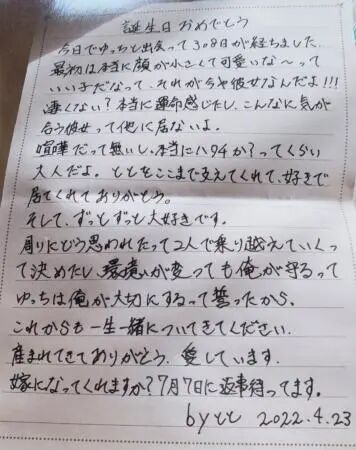 誕生日おめでとう
今日でゆっちと出会って308日が経ちました。
最初は本当に顔が小さくて可愛いな〜って
いい子だなって、それが今や彼女なんだよ!!!
凄くない?本当に運命感じたし、こんなに気が
合う彼女って他に居ないよ。
喧嘩だって無いし、本当にハタチか?ってくらい
大人だよ。ととをここまで支えてくれて、好きで
居てくれてありがとう。
そして、ずっとずっと大好きです。
周りにどう思われたって2人で乗り越えていくっ
て決めたし、環境が変っても俺が守るって
ゆっちは俺が大切にするって誓ったから。
これからも一生一緒についてきてください。
産まれてきてありがとう。愛しています。
嫁になってくれますか?7月7日に返事待ってます。
byとと 2022.4.23